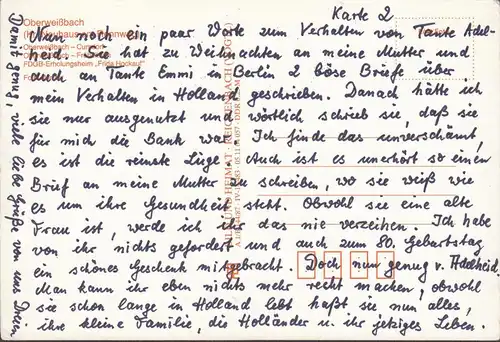 Karte 2
Oberweißbach
Nun noch ein paar Worte zum Verhalten von Tante Adel-
heid. Sie hat zu Weihnachten an meine Mutter und
Oberweißbach – Cursdorf
auch an Tante Emmi in Berlin 2 böse Briefe über
FDGB-Erholungsheim „Frida Hockauf“
mein Verhalten in Holland geschrieben. Danach hätte ich
sie nur ausgenutzt und wörtlich schrieb sie, daß sie
für mich die Bank war. Ich finde das unverschämt,
es ist die reinste Lüge. Auch ist es unerhört so einen
Brief an meine Mutter zu schreiben, wo sie weiß wie
es um ihre Gesundheit steht. Obwohl sie eine alte
Frau ist, werde ich ihr das nie verzeihen. Ich habe
von ihr nichts gefordert und auch zum 80. Geburtstag
ein schönes Geschenk mitgebracht. Doch nun genug v. Adelheid.
Man kann ihr eben nichts mehr recht machen, obwohl
sie schon lange in Holland lebt haßt sie nun alles,
ihre kleine Familie, die Holländer u. ihr jetziges Leben.
Damit genug, viele liebe Grüße von uns Dreien
BILD UND HEIMAT REICHENBACH (VOGTL)